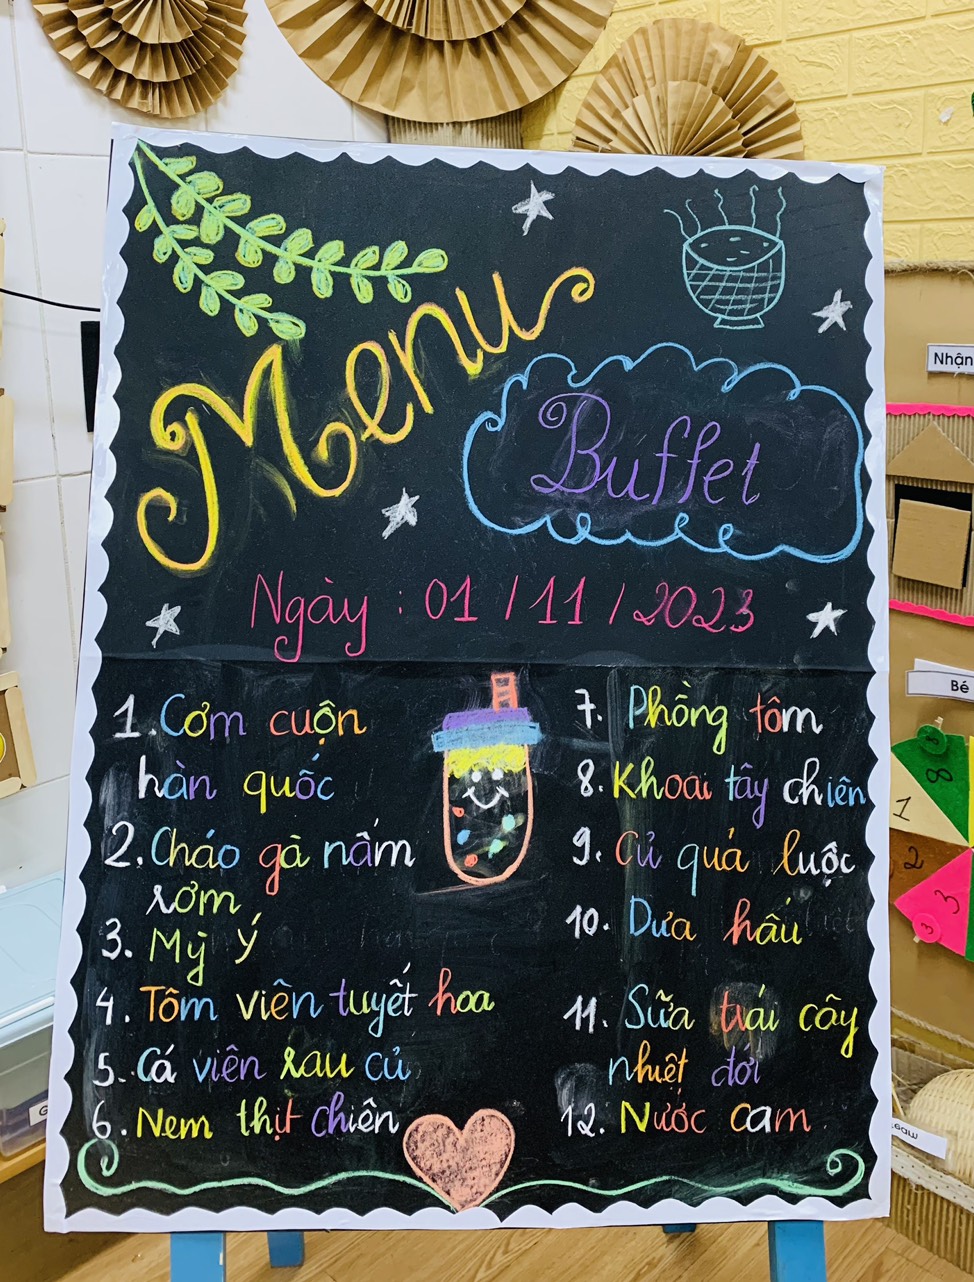 Menu
Buffet
Ngày : 01 / 11 / 2023
1. Cơm cuộn
hàn quốc
2. Cháo gà nấm
rơm
3. Mỳ Ý
4. Tôm viên tuyết hoa
5. Cá viên rau củ
6. Nem thịt chiên
7. Phồng tôm
8. Khoai tây chiên
9. Củ quả luộc
10. Dưa hấu
11. Sữa trái cây
nhiệt đới
12. Nước cam
Nhận
Bé
8
1
2
3